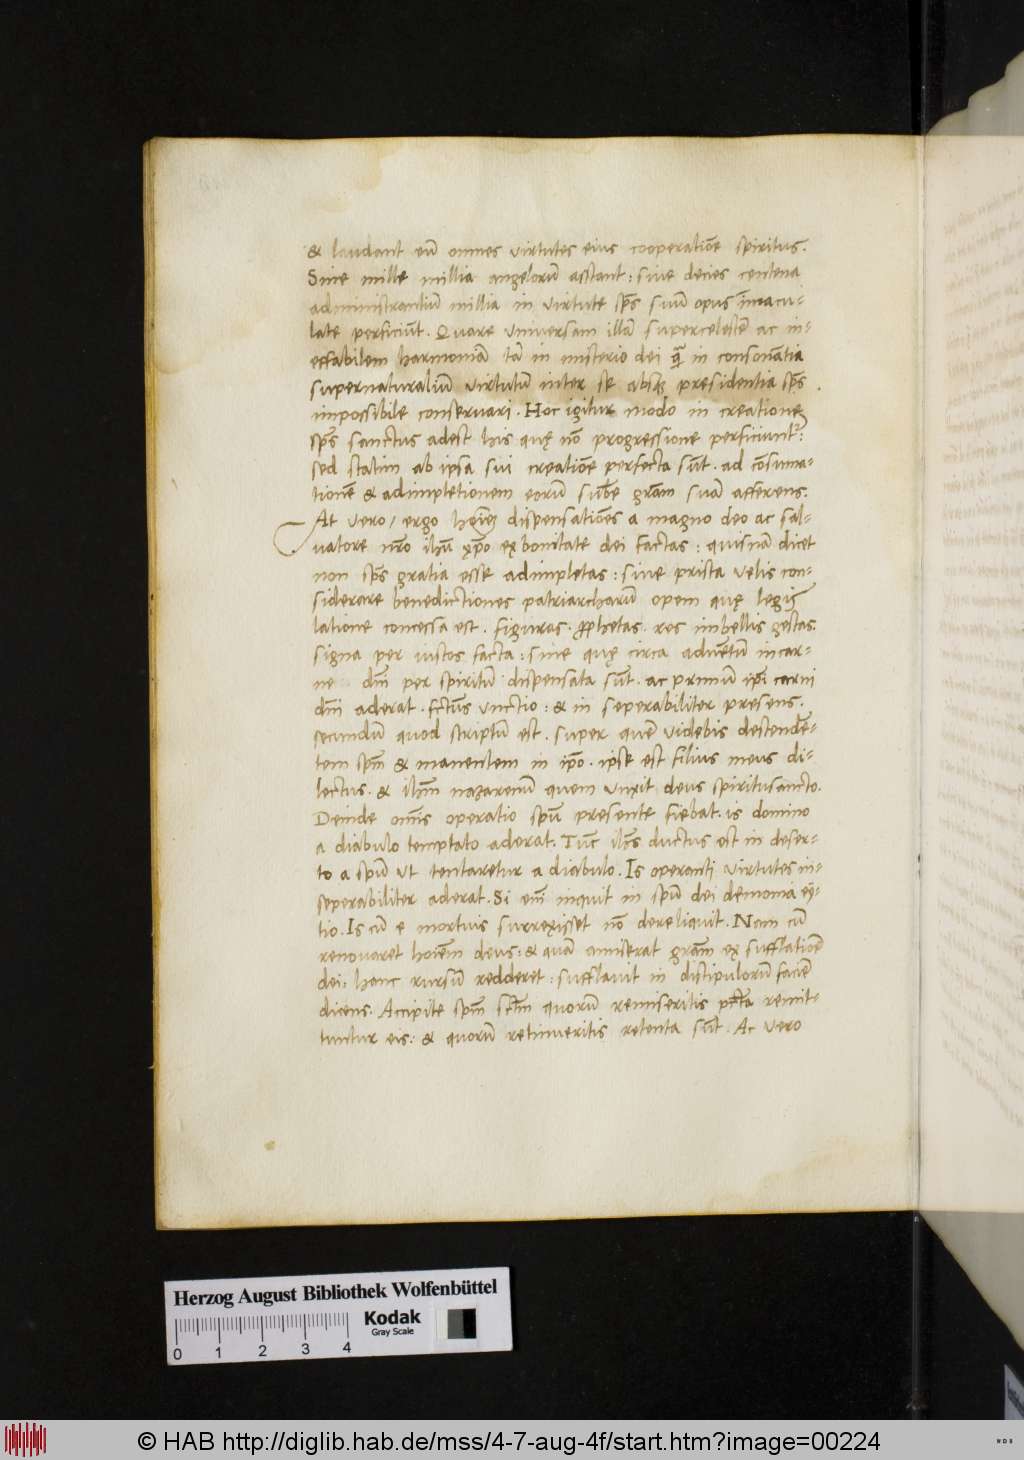 & laudant eũ omnes virtutes eius cooperatiõe spiritus.
Siue mille millia angelorũ asstant: siue decies centena
administrantiũ millia in virtute sp̃s suũ opus ĩmacu-
late perficiũt. Quare vniuersam illã supercelestẽ ac in-
effabilem harmoniã tã in misterio dei q̃ in consonãtia
supernaturaliũ virtutũ inter se absq; presidentia sp̃s
impossibile conseruari. Hoc igitur modo in creatione
sp̃s sanctus adest his quę nõ progressione perficiunt~:
sed statim ab ipsa sui creatiõe perfecta sũt. ad cõsuma-
tionẽ & adimpletionem eorũ subẽ gr̃am suã afferens.
At vero/ ergo hoĩem dispensatiões a magno deo ac sal-
uatore nr̃o ihũ xp̃o ex bonitate dei factas: quisnã dicet
non sp̃s gratia esse adimpletas: siue prista velis con-
siderare benedictiones patriarcharũ opem quę legis
latione concessa est. figuras. ꝓphetas. res imbellis gestas.
signa per iustos facta: siue quę circa aduẽtũ incar-
ne dñi per spiritũ dispensata sũt. ac primũ ip̃i carni
dñi aderat. fctũs vnctio: & in seperabiliter presens.
secundũ quod scriptũ est. super quẽ videbis descendẽ-
tem sp̃m & manentem in ip̃o. ipse est filius meus di-
lectus. & ihm̃ nazarenũ quem vnxit deus spiritusancto.
Deinde om̃is operatio spũ presente fiebat. is domino
a diabulo temptato aderat. Tũc ihs̃ ductus est in deser-
to a spũ vt tentaretur a diabulo. Is operanti virtutes in-
seperabiliter aderat. Si em̃ inquit in spũ dei demonia ey-
tio. Is cũ e mortuis surrexisset nõ dereliquit. Nam cũ
renouaret hoiem̃ deus: & quã amiserat gr̃am ex sufflatiõe
dei: hanc rursũ redderet: sufflauit in discipulorũ faciẽ
dicens. Accipite sp̃m sct̃m quorũ remiseritis pctã remit-
tuntur eis: & quorũ retinueritis retenta sũt. Ac vero
Herzog August Bibliothek Wolfenbüttel
Kodak
Gray Scale
0 1 2 3 4
© HAB http://diglib.hab.de/mss/4-7-aug-4f/start.htm?image=00224
WDB